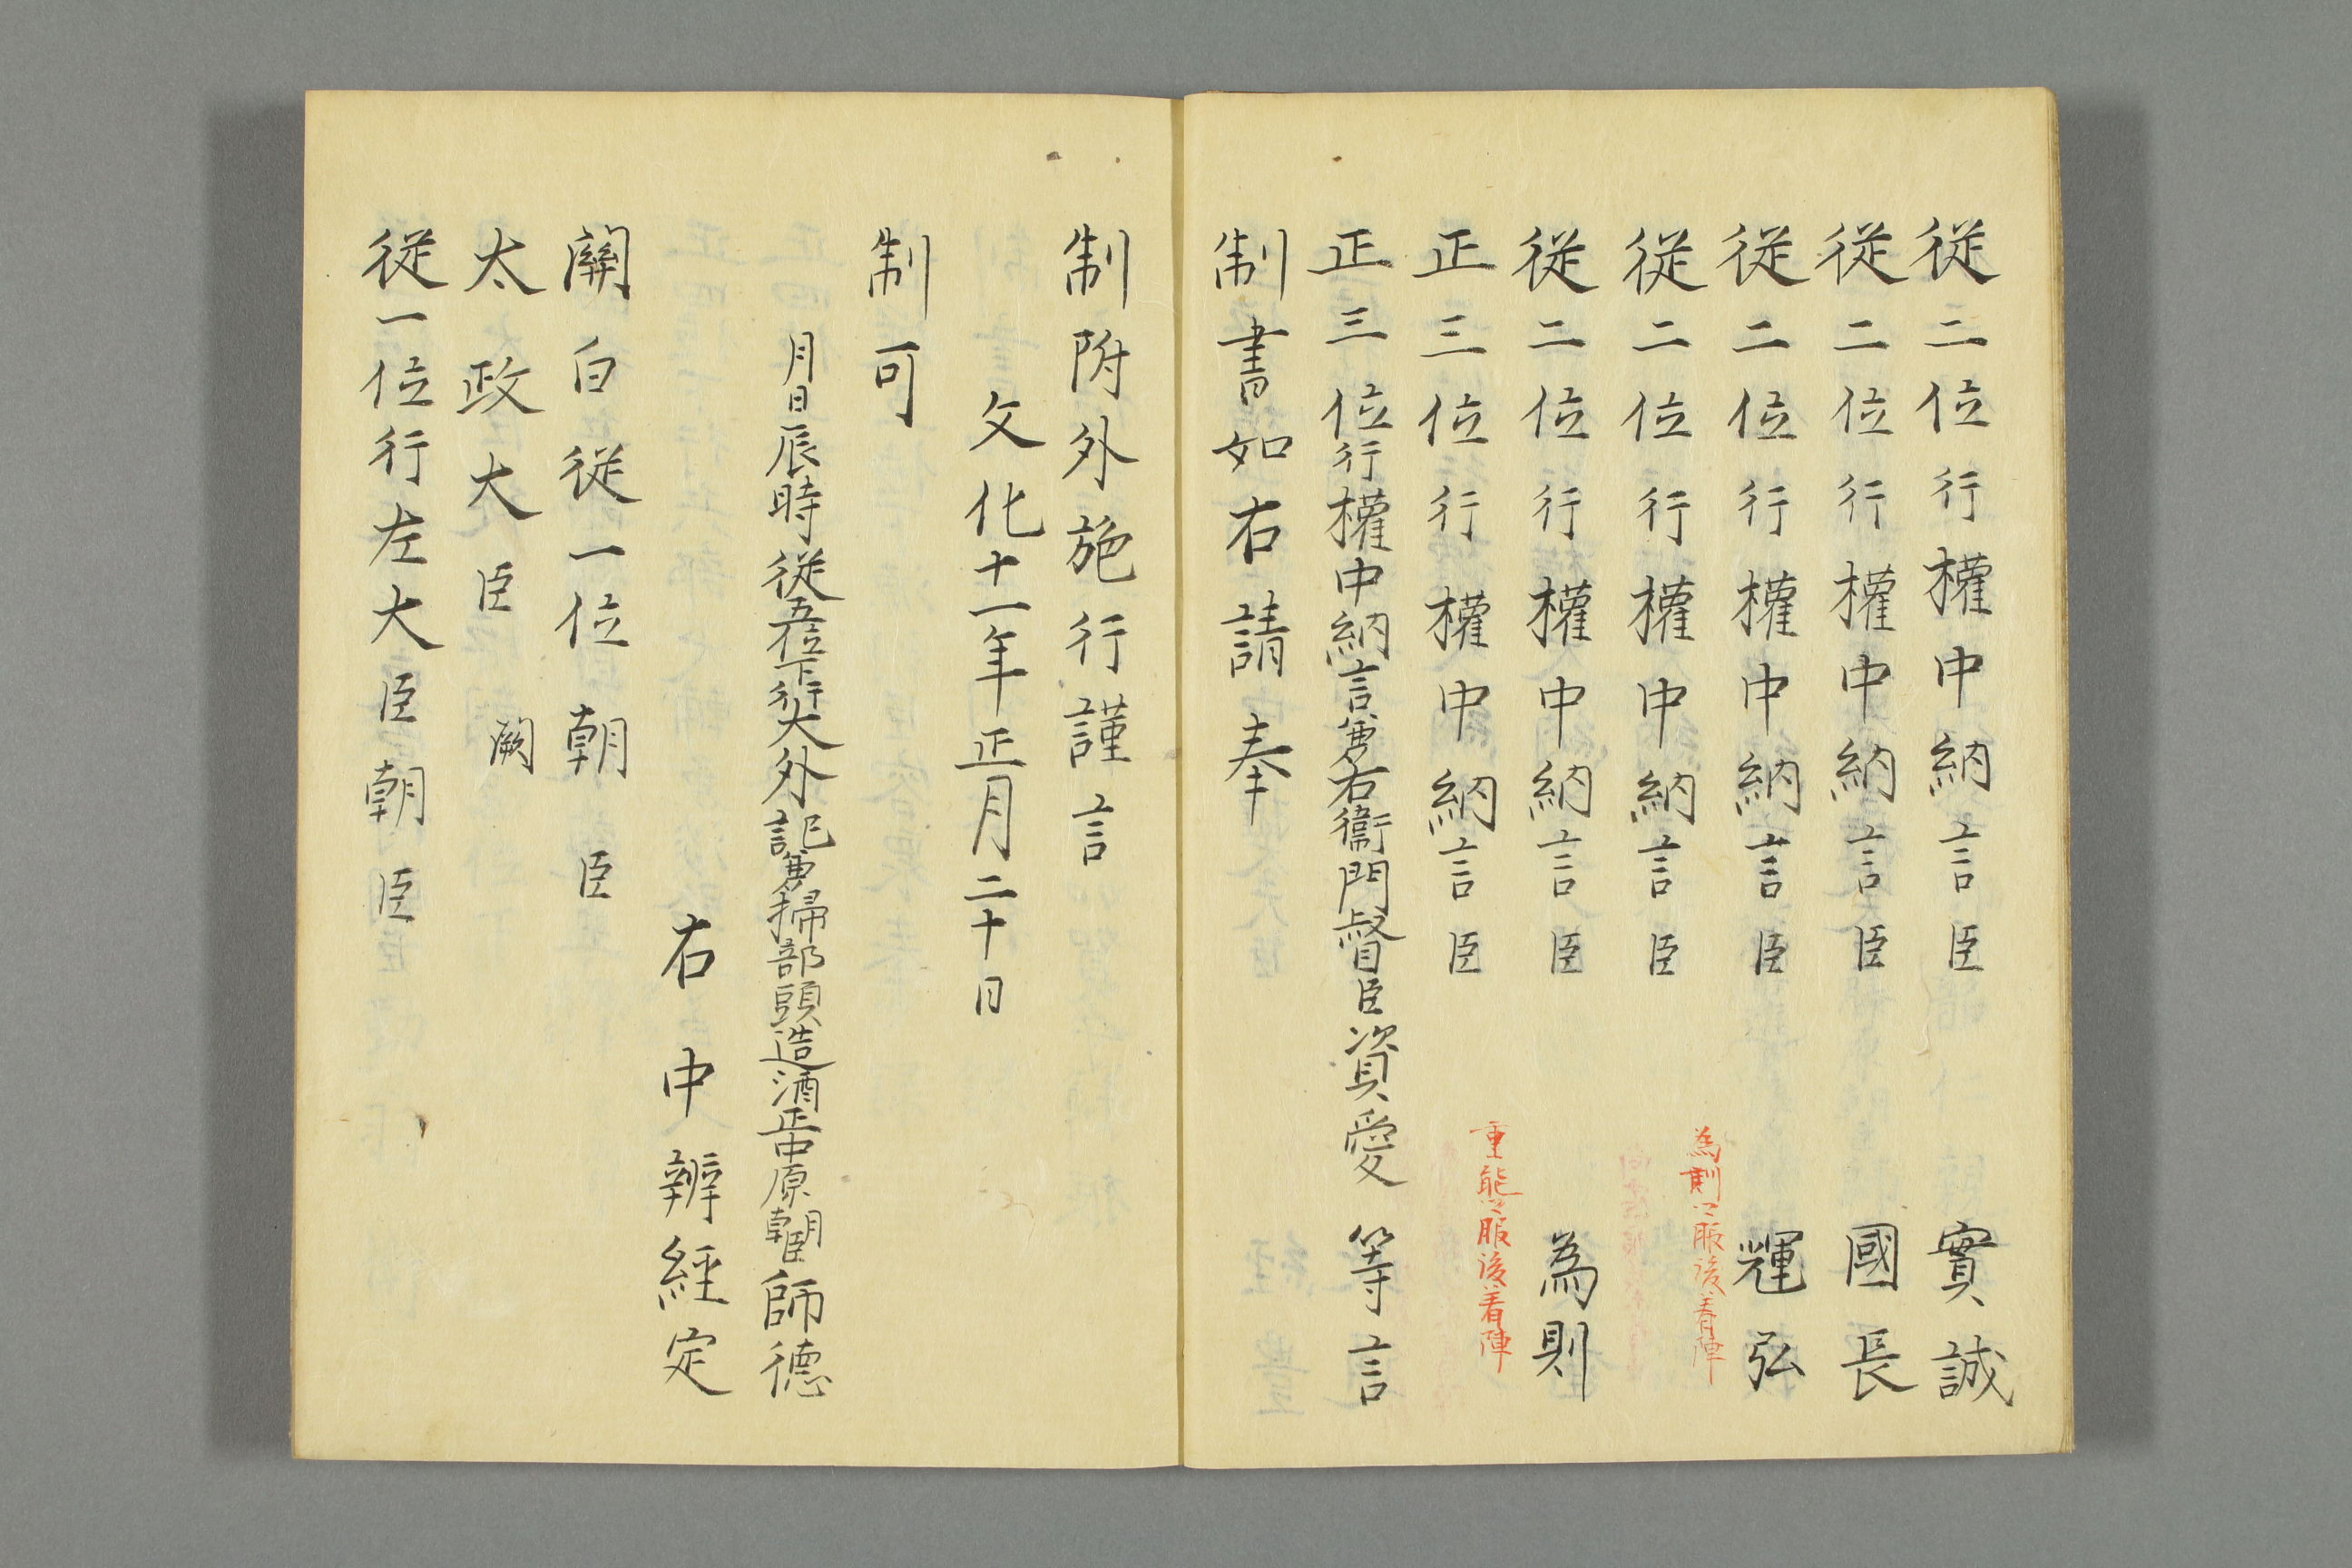 從二位行權中納言臣　實誠
從二位行權中納言臣　國長
從二位行權中納言臣　輝弘
為則卿服後着陣
從二位行權中納言臣
從二位行權中納言臣　為則
重能卿服後着陣
正三位行權中納言臣
正三位行權中納言兼右衞門督臣資愛等言
制書如右請奉
制附外施行謹言
文化十一年正月二十日
制可
月日辰時從五位下行大外記兼掃部頭造酒正中原朝臣師德
右中辨經定
關白從一位朝臣
太政大臣　闕
從一位行左大臣朝臣